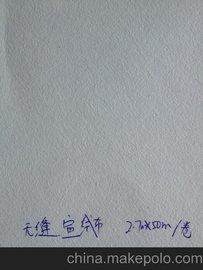 无缝 宣绒布 2.7m×50m/卷
china.makepolo.com